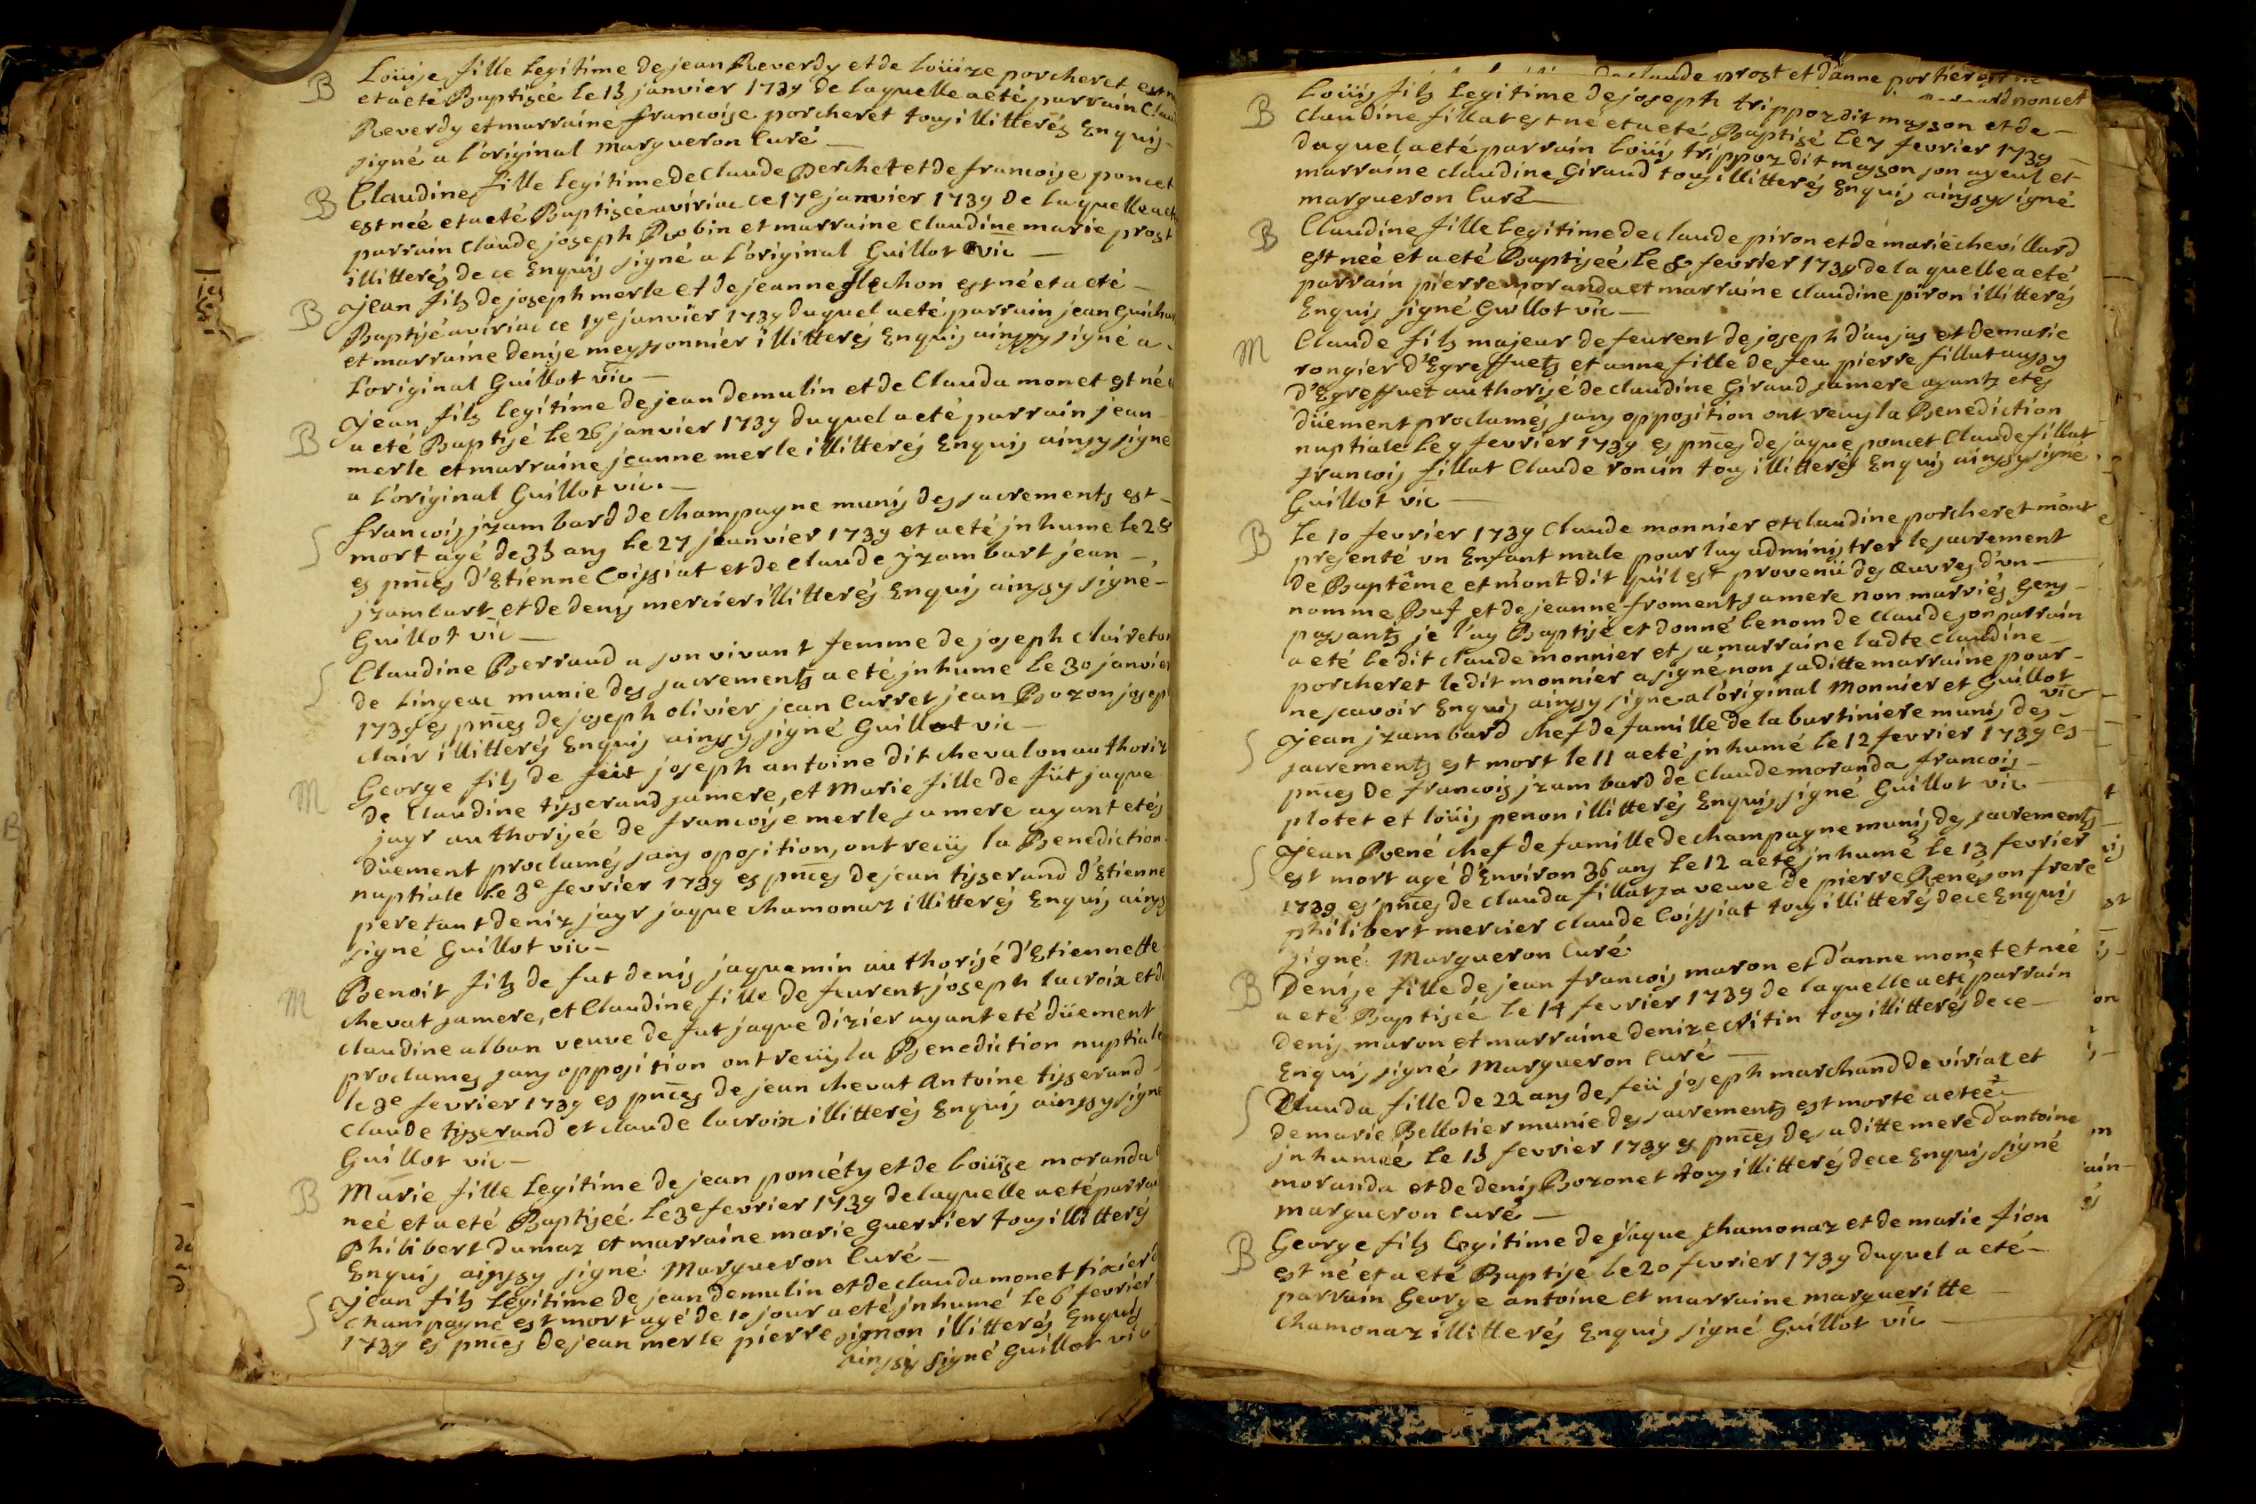 B Loüise fille legitime de jean Reverdy et de Loüize porcheret est
et a eté Baptiseé le 13 janvier 1739 de laquelle a eté parrain Clau
Reverdy et marraine francoise porcheret tous illitterés Enquis
signé a l'original margueron Curé
B Claudine fille legitime de Claude Perchet et de francoise poncet
est neé et a eté Baptiseé a viriac ce 17e janvier 1739 de laquelle a
parrain Claude joseph Robin et marraine Claudine marie prost
illitterés de ce Enquis signé a l'original Guillot vic
B jean fils de joseph merle et de jeanne flechon est né et a eté
Baptisé a viriac ce 19e janvier 1739 duquel a eté parrain jean Guichar
et marraine denise meyssonnier illitterés Enquis ainssy signé a
l'original Guillot vic
B jean fils legitime de jean demulin et de Clauda monet est né
a eté Baptisé le 26 janvier 1739 duquel a eté parrain jean
merle et marraine jeanne merle illitterés Enquis ainsy signe
a l'original Guillot vic.
S francois jzambard de champagne munis des sacrements est
mort agé de 35 ans le 27 janvier 1739 et a eté jnhume le 28
es pnces d'Etienne Coissiat et de Claude jzambart jean
jzambart et de denis mercier illitterés Enquis ainsy signé
Guillot vic
S Claudine Berraud a son vivant femme de joseph claireton
de Lingeac munie des sacrements a eté jnhume le 30 janvier
1739 es pnces de joseph olivier jean Curret jean Bozon josep
clair illitterés Enquis ainsy signé Guillot vic
M George fils de feüt joseph antoine dit chevalon authoriz
de Claudine tisserand sa mere, et Marie fille de füt jaque
jayr authoriseé de francoise merle sa mere ayant etés
düement proclamés sans oposition, ont reçüs la Benediction
nuptiale le 3e fevrier 1739 es pnces de jean tisserand d'Etienne
peretant deniz jayr jaque chamonaz illitterés Enquis ainsy
signé Guillot vic
M Benoit fils de fut denis jaquemin authorisé d'Etiennette
chevat sa mere, et Claudine fille de feurent joseph lacroix et de
claudine alban veuve de fut jaque dizier ayant eté düement
proclames sans opposition ont reçüs la Benediction nuptiale
le 3e fevrier 1739 es pnces de jean chevat Antoine tisserand
Claude tisserand et claude lacroix illitterés Enquis ainsy signe
Guillot vic
B Marie fille legitime de jean poncéty et de Loüise moranda
neé et a eté Baptiseé le 3e fevrier 1739 de laquelle a eté parra
philibert dumaz et marraine marie guerrier tous illitterés
Enquis ainssy signé Margueron Curé
S jean fils legitime de jean demulin et de clauda monet tixier d
champagne est mort agé de 10 jour a eté jnhumé le 6 fevrier
1739 es pnces de jean merle pierre simon illitterés Enquis
ainssy signé Guillot vic
de claude prost et d'anne portier est
poncet
B Loüis fils legitime de joseph trippoz dit masson et de
Claudine fillat est né et a eté Baptisé le 7 fevrier 1739
duquel a eté parrain Loüis trippoz dit masson son ayeul et
marraine claudine Giraud tous illitterés Enquis ainssy signé
margueron Curé
B Claudine fille legitime de claude piron et de marie chevillard
est neé et a eté Baptiseé le 8 fevrier 1739 de laquelle a eté
parrain pierre moranda et marraine claudine piron illitterés
Enquis signé Guillot vic
M Claude fils majeur de feurent de joseph d'anjas et de marie
rongier d'Egreffuets et anne fille de feu pierre fillat aussy
d'Egreffuet authorisé de claudine Giraud sa mere ayants etés
düement proclamés sans opposition ont reçus la Benediction
nuptiale le 9 fevrier 1739 es pnces de jaque poncet Claude fillat
francois fillat Claude roncin tous illitterés Enquis ainssy signé
Guillot vic
B Le 10 fevrier 1739 Claude monnier et claudine porcheret m'ont
presenté un Enfant male pour luy administrer le sacrement
de Baptême et m'ont dit qu'il est provenü des œuvres d'un
nomme Buf et de jeanne froment sa mere non marriés Gens
passants je l'ay Baptisé et donné le nom de claude son parrain
a eté le dit claude monnier et sa marraine ladte Claudine
porcheret le dit monnier a signé non saditte marraine pour
ne scavoir Enquis ainsy signe a l'original Monnier et Guillot
vic
S jean jzambard chef de famille de la bartiniere munis des
sacrements est mort le 11 a eté jnhumé le 12 fevrier 1739 es
pnces de francois jzambard de Claude moranda francois
plotet et loüis penon illitterés Enquis signé Guillot vic
S jean René chef de famille de champagne munis des sacrements
est mort agé d'Environ 36 ans le 12 a eté jnhumé le 13 fevrier
1739 es pnces de clauda fillat sa veuve de pierre René son frere
philibert mercier claude Coissiat tous illitterés de ce Enquis
signé Margueron Curé
B Denise fille de jean francois maron et d'anne monet et neé
a eté Baptiseé le 14 fevrier 1739 de laquelle a eté parrain
denis maron et marraine denize critin tous illitterés de ce
Enquis signé Margueron Curé
S Clauda fille de 22 ans de feü joseph marchand de viriat et
de marie Bellotier munie des sacrements est morte a eteé
jnhumeé le 13 fevrier 1739 es pnces de saditte mere d'antoine
moranda et de denis Bozonet tous illitterés de ce Enquis signé
margueron Curé
B George fils legitime de jaque chamonaz et de marie fion
est né et a eté Baptisé le 20 fevrier 1739 duquel a eté
parrain George antoine et marraine margueritte
chamonaz illitterés Enquis signé Guillot vic